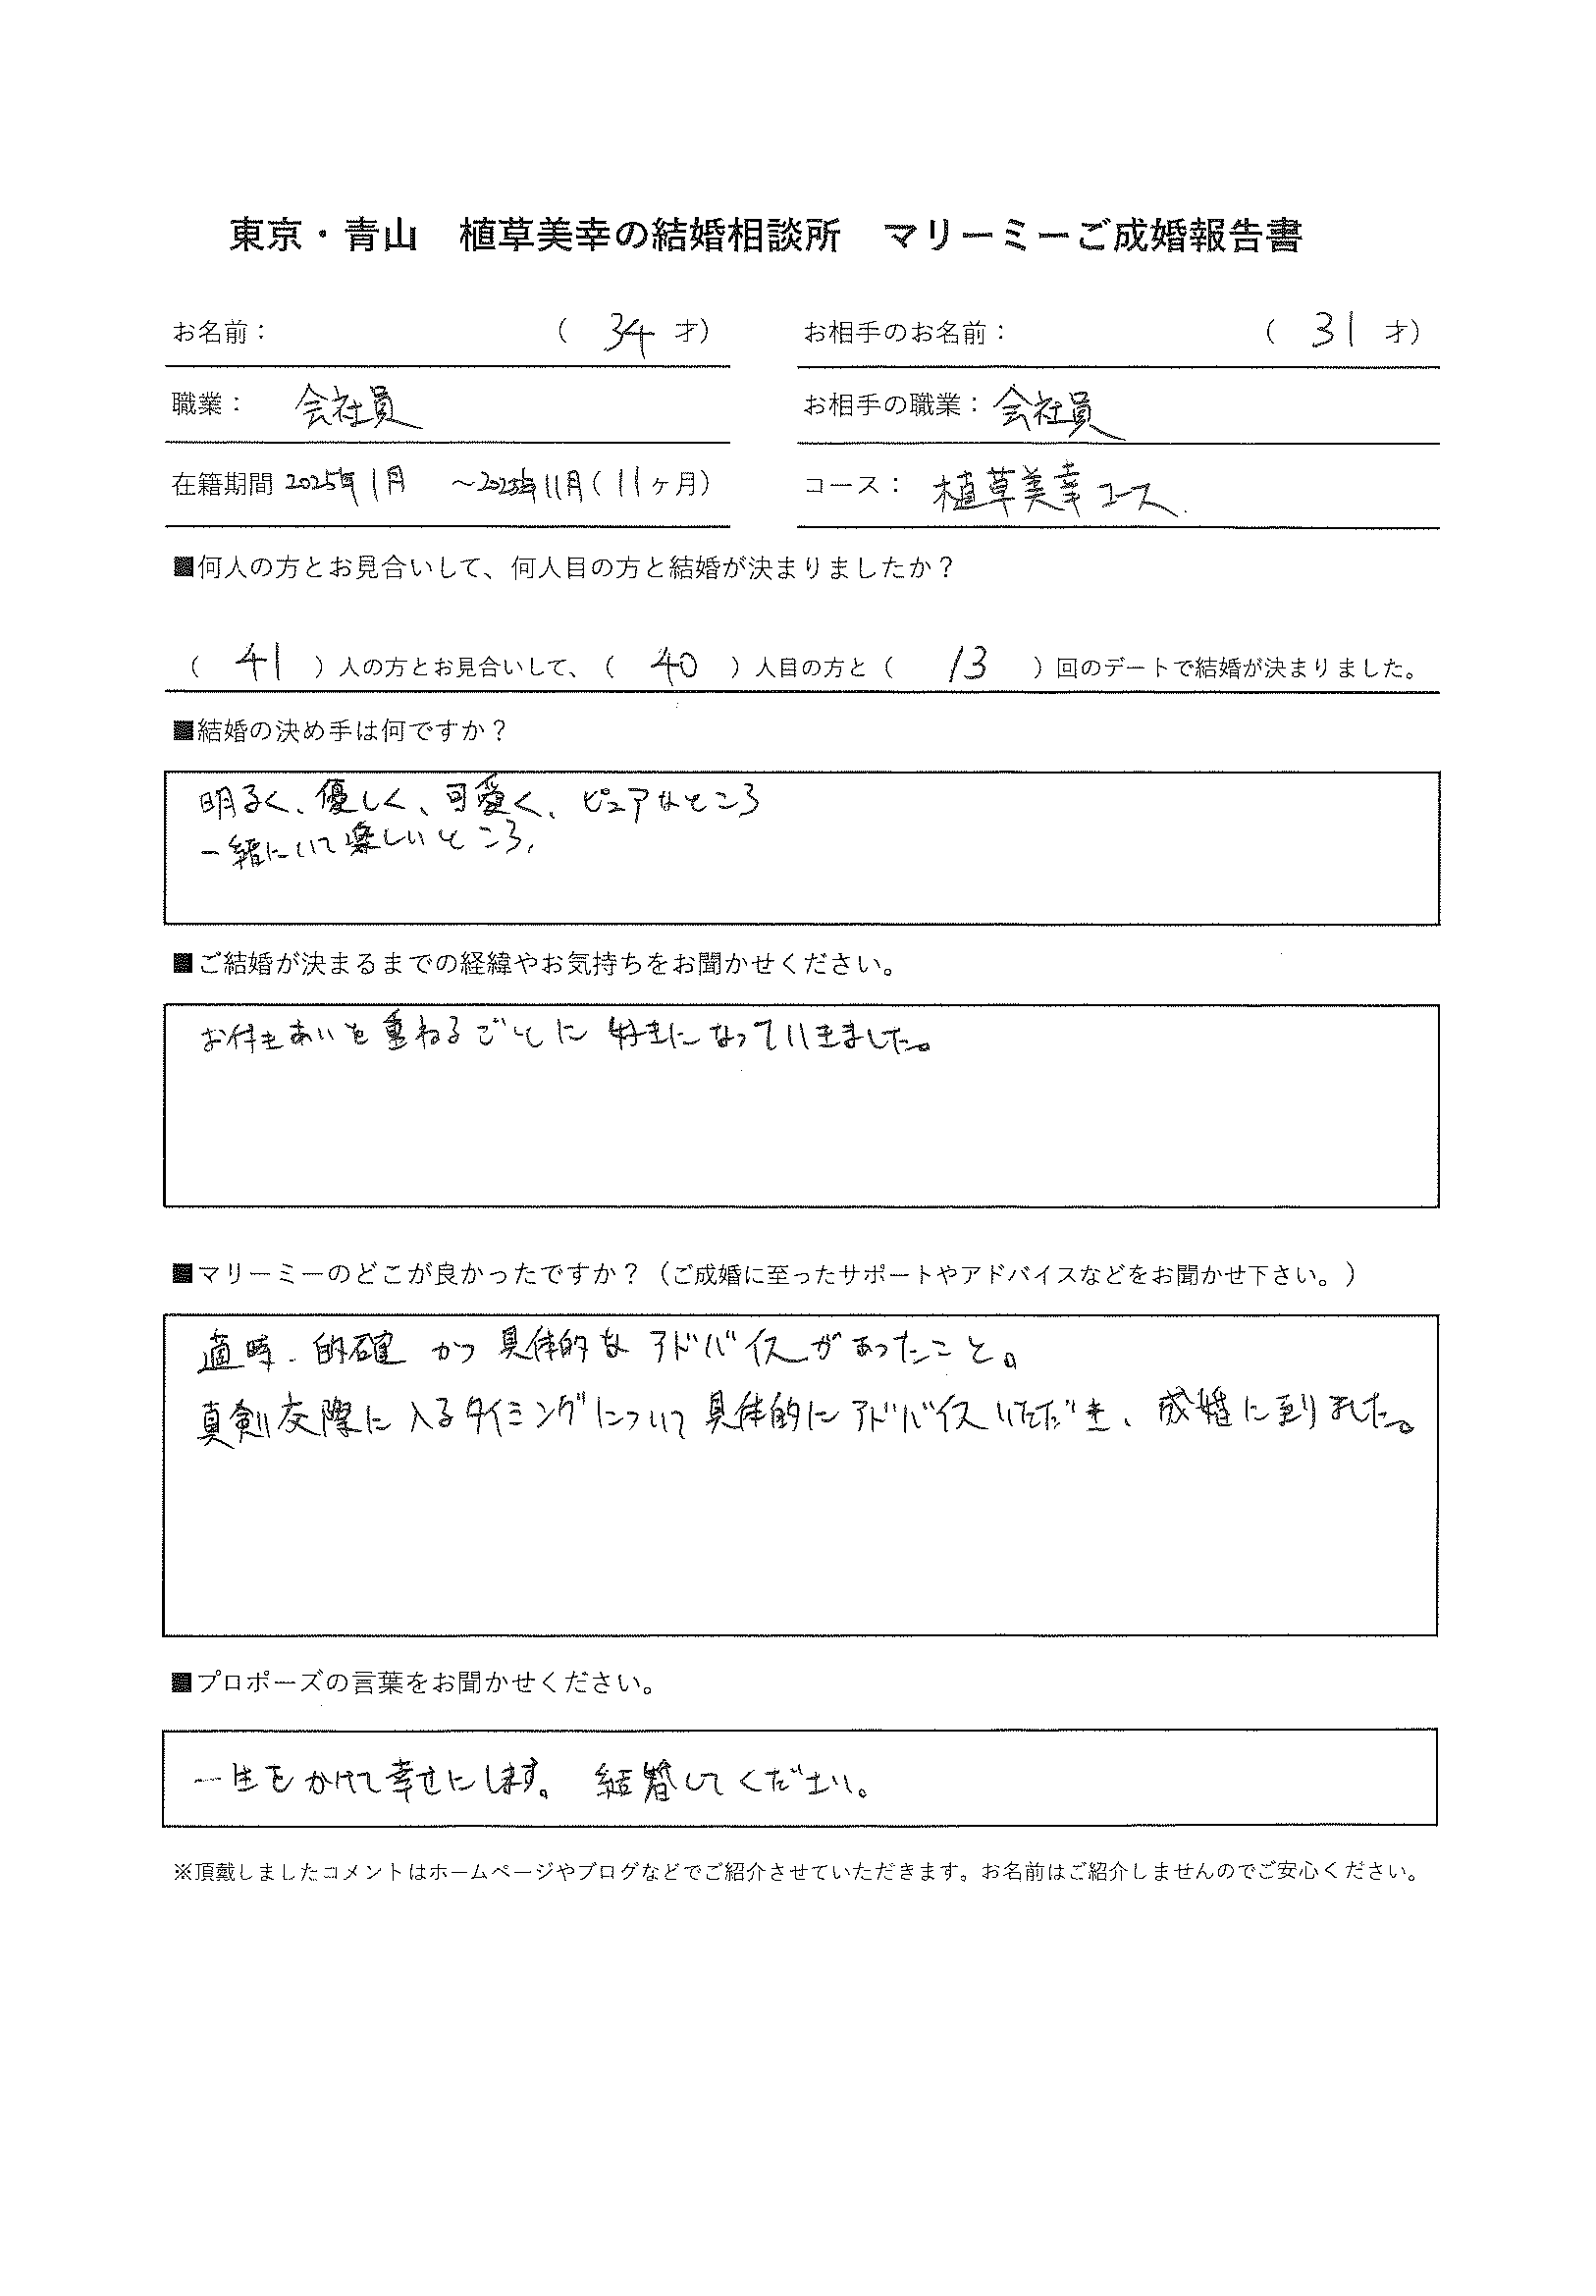 東京・青山　植草美幸の結婚相談所　マリーミーご成婚報告書
お名前：　（ 34 才）　お相手のお名前：　（ 31 才）
職業：　会社員　お相手の職業：会社員
在籍期間 2025年1月　～2025年11月（11ヶ月）　コース：　植草美幸コース
■何人の方とお見合いして、何人目の方と結婚が決まりましたか？
（ 41 ）人の方とお見合いして、（ 40 ）人目の方と（ 13 ）回のデートで結婚が決まりました。
■結婚の決め手は何ですか？
明るく、優しく、可愛く、ピュアなところ
一緒にいて楽しいところ、
■ご結婚が決まるまでの経緯やお気持ちをお聞かせください。
お付きあいを重ねるごとに好きになっていきました。
■マリーミーのどこが良かったですか？（ご成婚に至ったサポートやアドバイスなどをお聞かせ下さい。）
適時、的確かつ具体的なアドバイスがあったこと。
真剣交際に入るタイミングについて具体的にアドバイスいただき、成婚に至りました。
■プロポーズの言葉をお聞かせください。
一生をかけて幸せにします。結婚してください。
※頂戴しましたコメントはホームページやブログなどでご紹介させていただきます。お名前はご紹介しませんのでご安心ください。